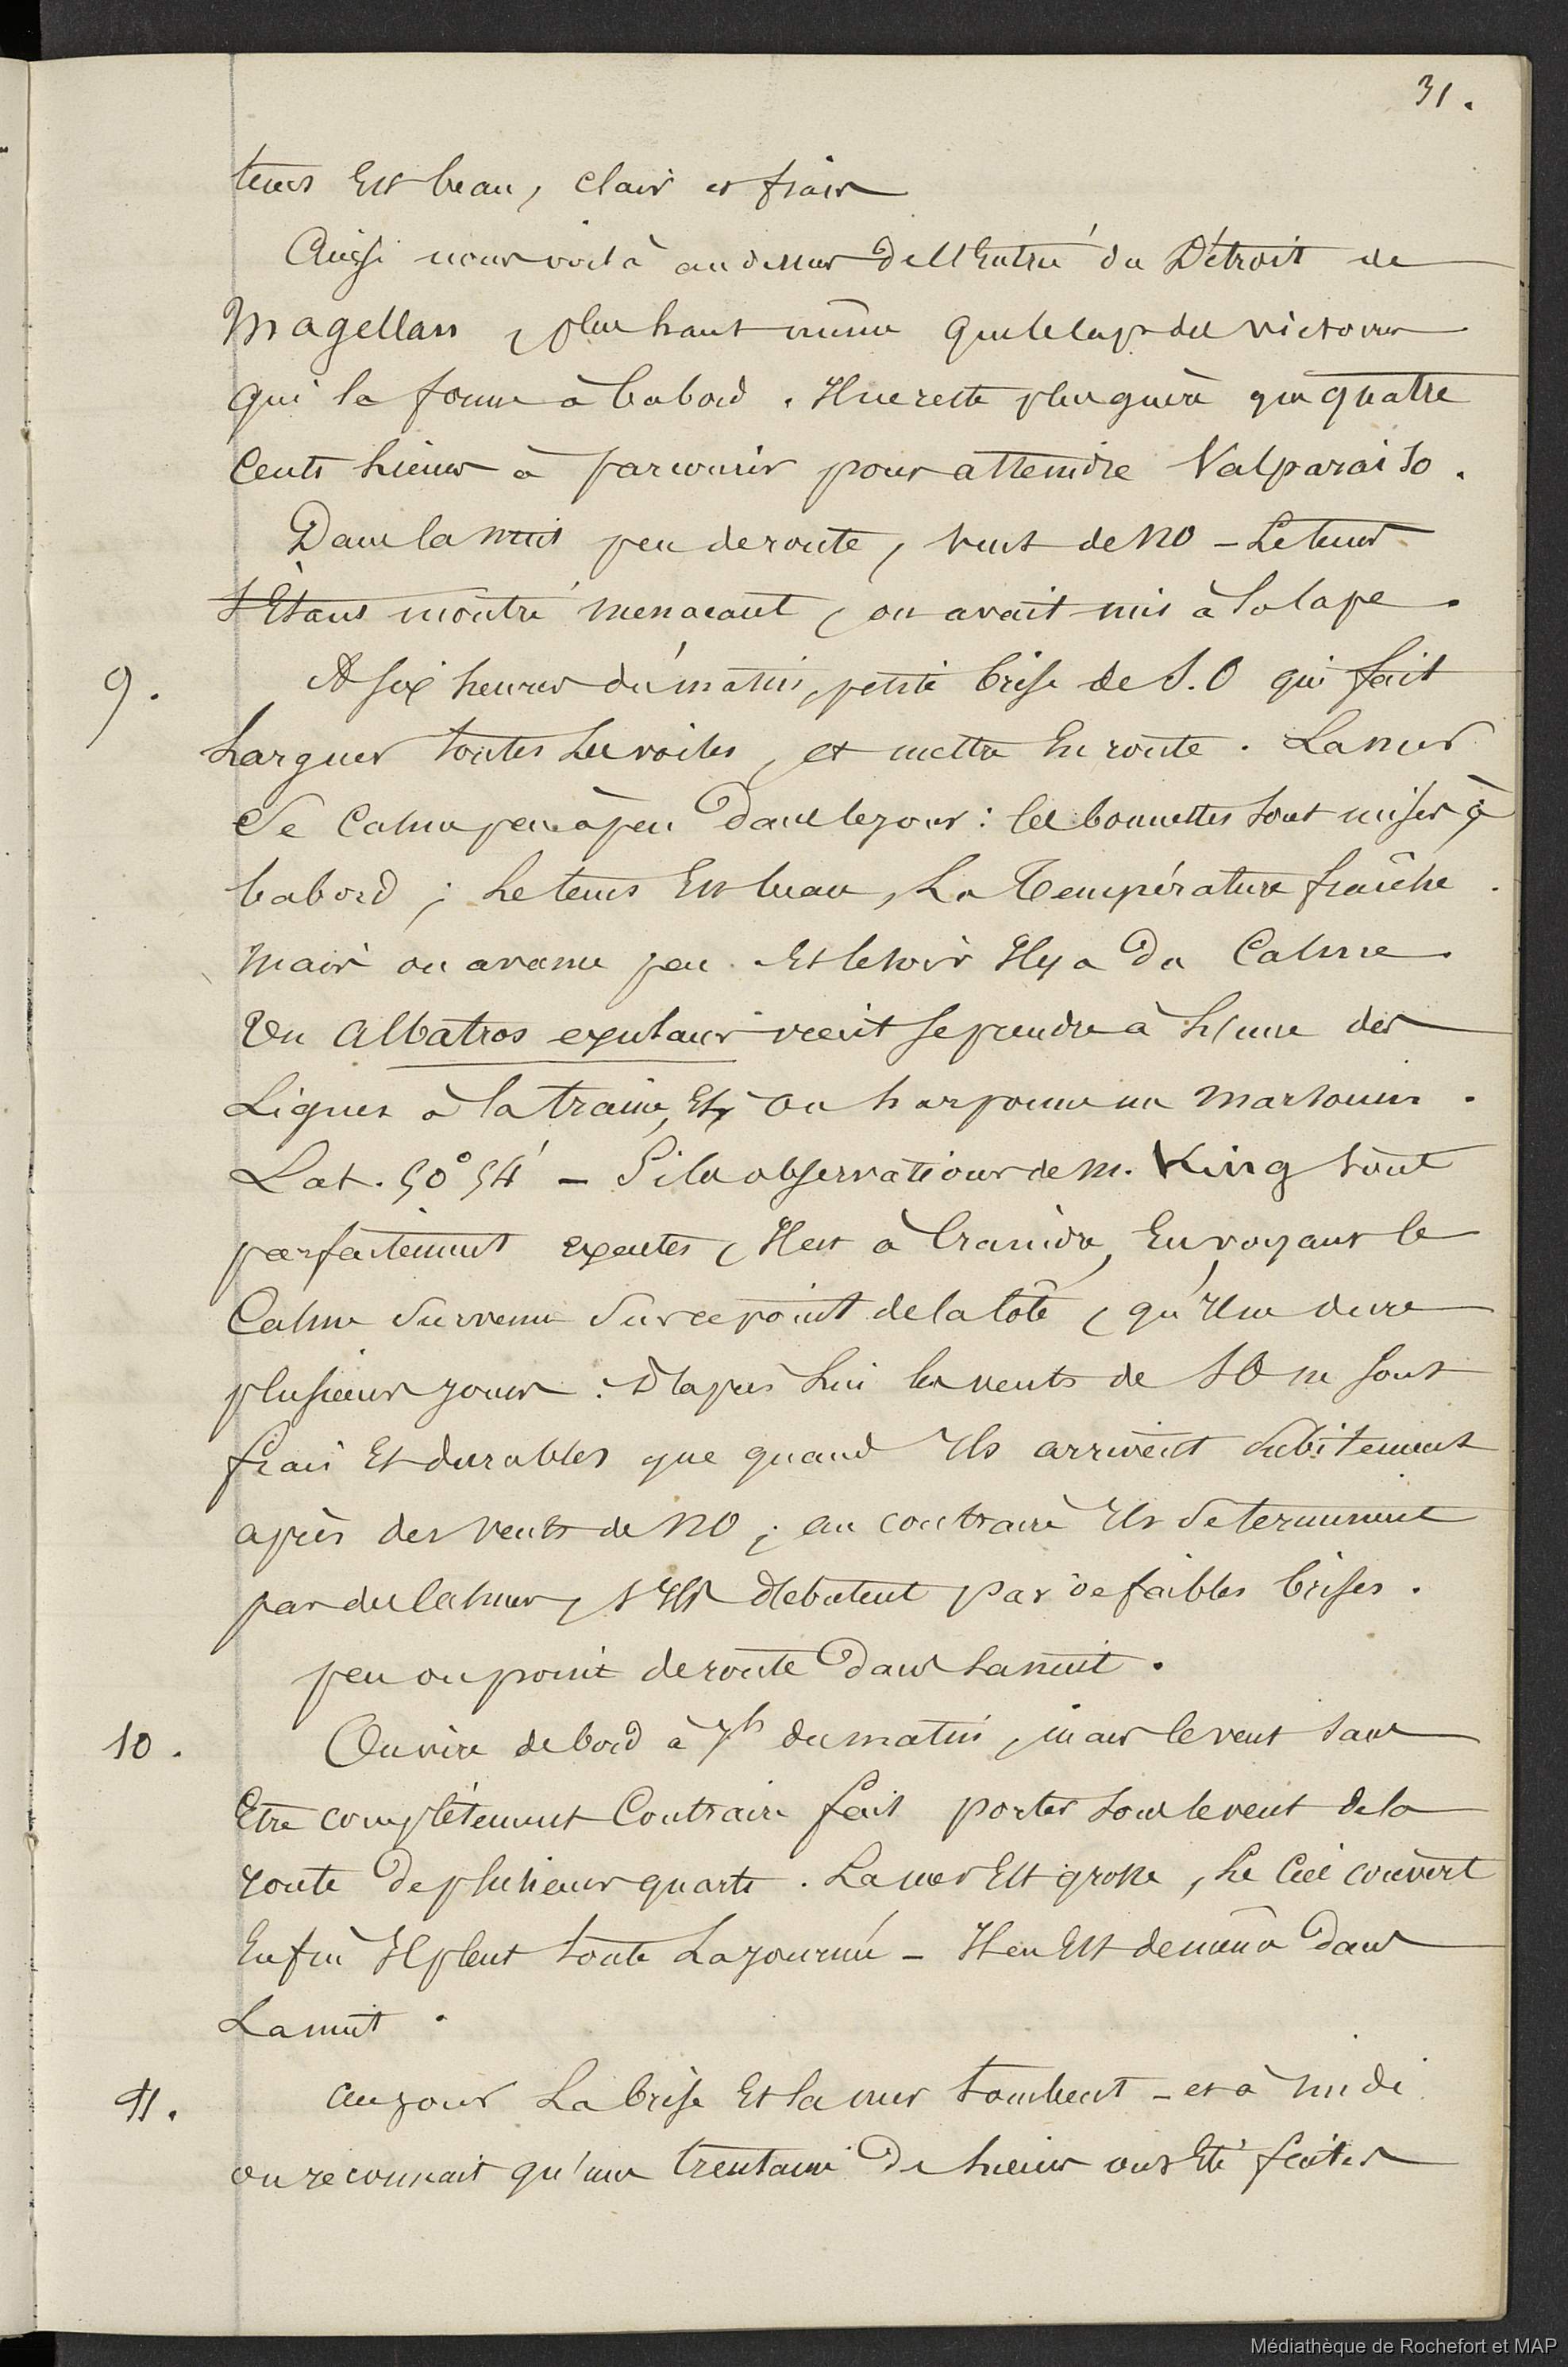 31.
tems Est beau, clair et frais
Aussi nous voilà au dessus de l'Entrée du Détroit de
Magellan, plus haut même que le cap des victoires
qui la forme à babord. Il ne reste plus guère que quatre
Cents lieues à parcourir pour atteindre Valparaiso.
Dans la nuit peu de route, vent de NO - Le tems
s'Étant montré menacant, on avait mis à la cape.
9.
A six heures du matin, petite brise de S.O qui fait
Larguer toutes Les voiles, et mettre En route. La mer
Se Calme peu à peu Dans le jour : les bonnettes sont mises à
babord ; Le tems Est beau, La Température fraîche.
Mais on avance peu. Et le soir Il y a Du Calme.
Un Albatros exulans vient se prendre à L'une des
Lignes à la traine, Et on harponne un marsouin.
Lat. 50° 54' - Si les observations de M. King sont
parfaitement exactes, Il est à Craindre, En voyant le
Calme Survenu Sur ce point de la côte, qu'Il ne dure
plusieurs jours. D'après Lui les vents de SO ne sont
frais Et durables que quand Ils arrivent Subitement
après des vents de NO ; au contraire Ils se terminent
par des Calmes, s'Ils débutent par de faibles brises.
peu ou point de route Dans La nuit.
10.
On vire de bord à 7h du matin, mais le vent sans
Etre complétement Contraire fait porter sous le vent de la
route De plusieurs quarts. La mer Est grosse, Le Ciel couvert
Enfin Il pleut toute La journée - Il en Est de même Dans
La nuit.
11.
Au jour La brise Et la mer tombent - et à midi
on reconnait qu'une trentaine De lieues ont Eté faites
Médiathèque de Rochefort et MAP